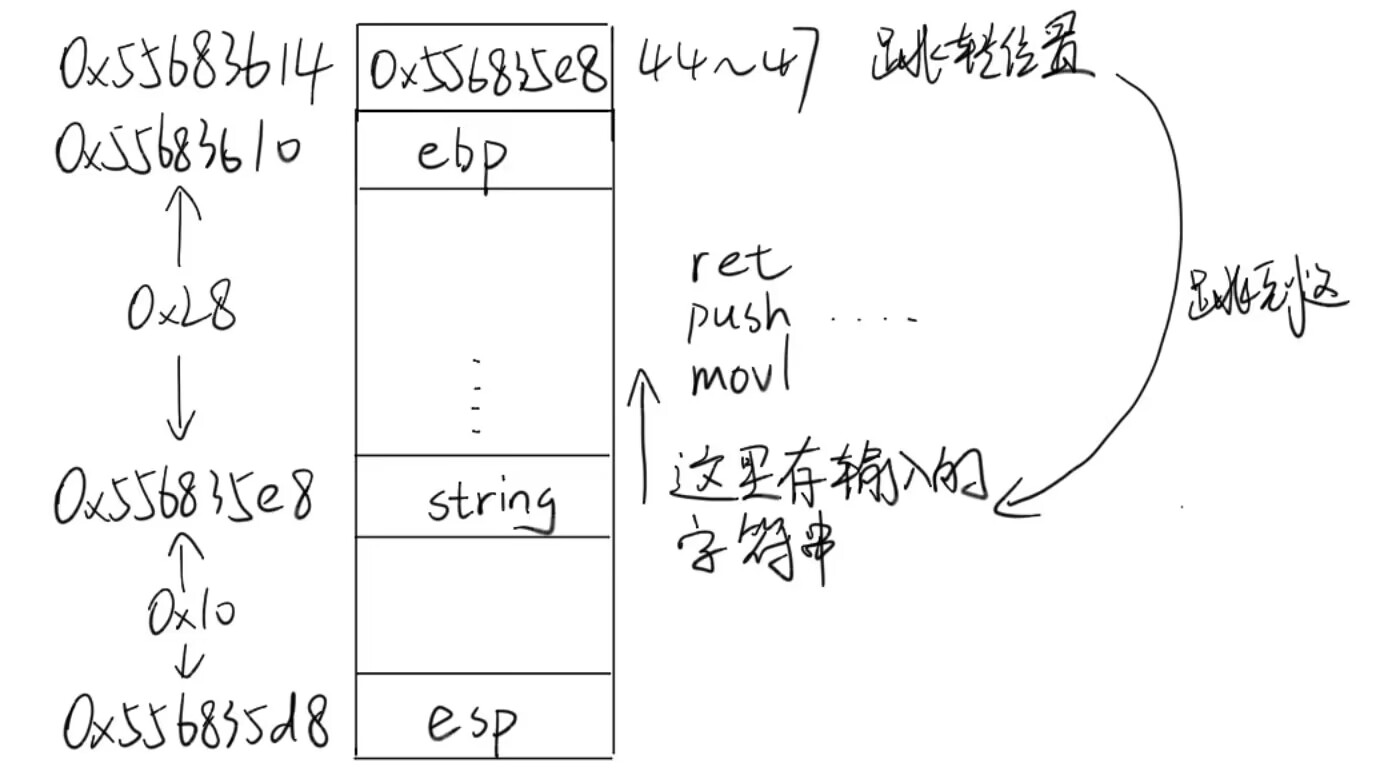 0x55683614 0x556835e8 44~47 跳转位置
0x55683610 ebp
ret
0x28 push .... 跳到这
movl
0x556835e8 string 这里存输入的
字符串
0x10
0x556835d8 esp